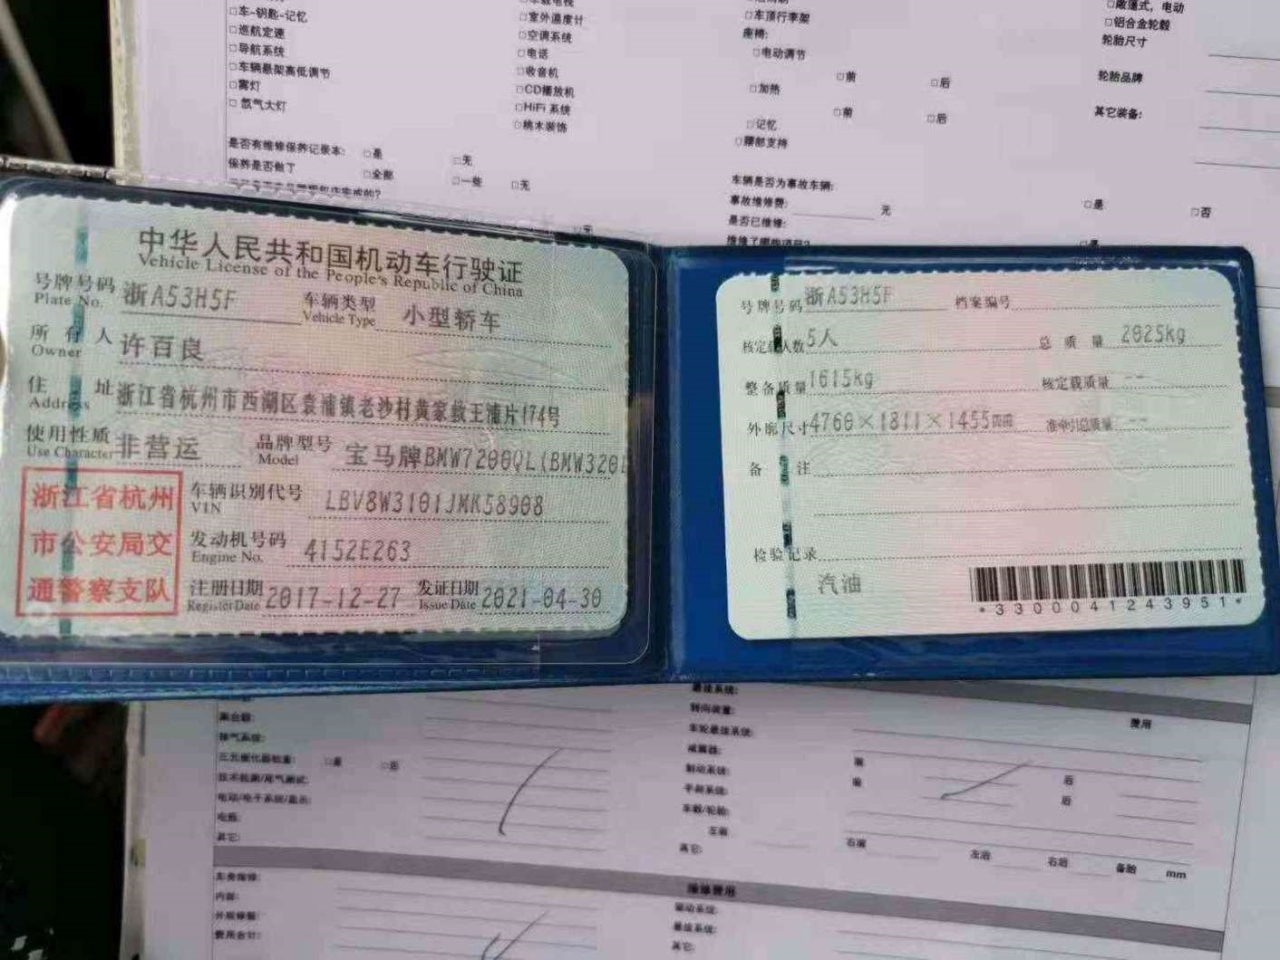 □车-钥匙-记忆
□巡航定速
□导航系统
□车辆悬架高低调节
□雾灯
□氙气大灯
□室外温度计
□空调系统
□电话
□收音机
□CD播放机
□HiFi 系统
□桃木装饰
□车顶行李架
座椅:
□电动调节
□前 □后
□加热
□前 □后
□记忆
□腰部支持
□敞篷式，电动
□铝合金轮毂
轮胎尺寸
轮胎品牌
其它装备:
是否有维修保养记录本: □是 □无
保养是否做了 □全部 □一些 □无
车辆是否为事故车辆:
□是 □否
事故维修费: 元
是否已维修:
中华人民共和国机动车行驶证
Vehicle License of the People's Republic of China
号牌号码 浙A53H5F 车辆类型 小型轿车
Plate No. Vehicle Type
所有人 许百良
Owner
住址 浙江省杭州市西湖区袁浦镇老沙村黄家埭王浦片174号
Address
使用性质 非营运 品牌型号 宝马牌BMW7200QL(BMW320
Use Character Model
浙江省杭州
市公安局交
通警察支队
车辆识别代号 LBV8W3101JMK58908
VIN
发动机号码 4152E263
Engine No.
注册日期 2017-12-27 发证日期 2021-04-30
Register Date Issue Date
号牌号码 浙A53H5F 档案编号
核定载人数 5人 总质量 2025kg
整备质量 1615kg 核定载质量 --
外廓尺寸 4760×1811×1455mm 准牵引总质量 --
备注
检验记录
汽油
*3300041243951*
悬挂系统:
转向装置:
费用
车轮悬挂系统:
减震器:
制动系统:
手刹系统:
车毂/轮胎:
左前 右前 左后 右后 备胎 mm
其它:
离合器:
排气系统:
三元催化器检查: □是 □否
技术检测/尾气测试:
电动/电子系统/显示:
电瓶:
其它:
维修费用
车身维修:
内部:
外观修复:
费用合计:
驱动系统:
悬挂系统:
其它: